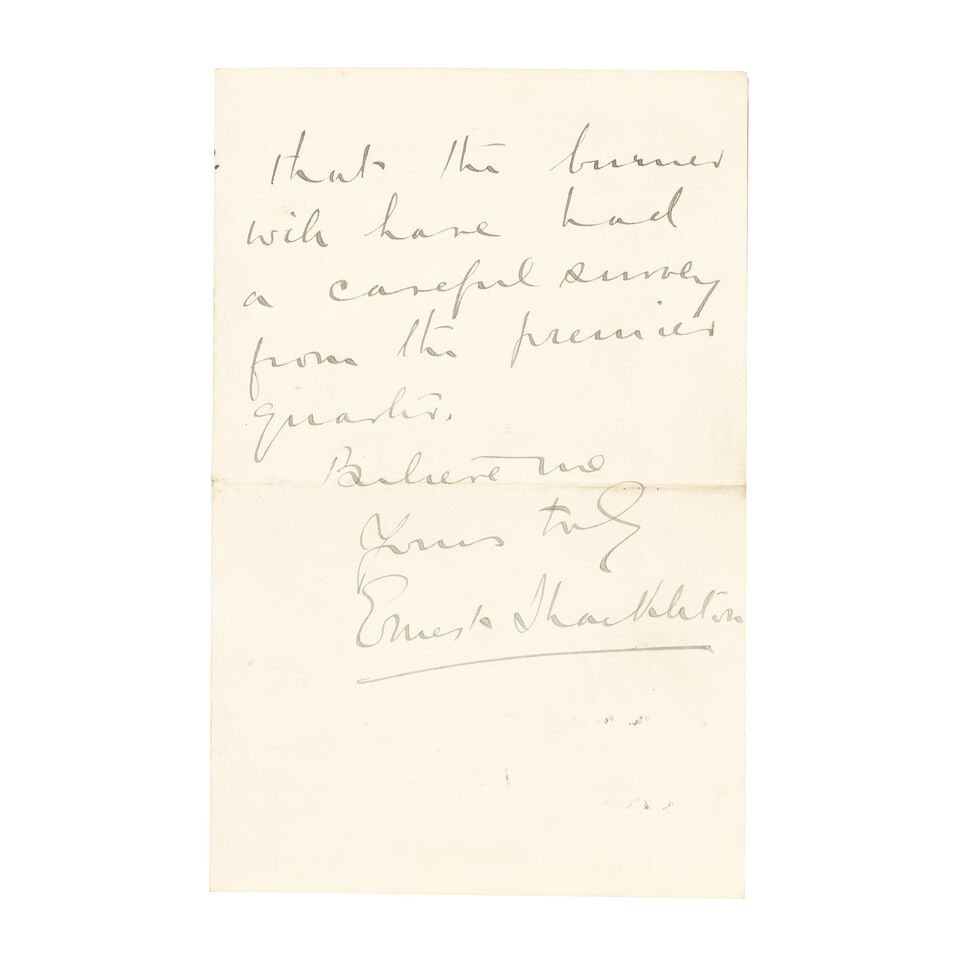 that the burner
will have had
a careful survey
from the premier
quarter.
Believe me
Yours truly
Ernest Shackleton